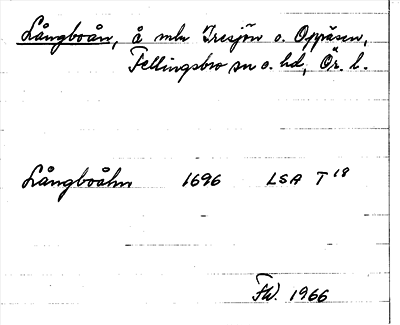 Långboån, å mln Iresjön o. Oppåsen,
Fellingsbro sn o. hd, Ör. l.
Långboåhn 1696 LSA T 18
FW. 1966